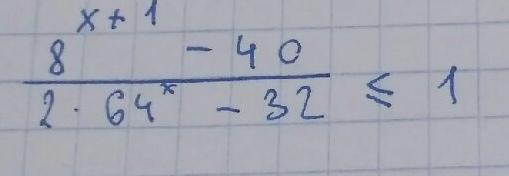 8^{x+1} - 40
2 · 64^x - 32 ≤ 1